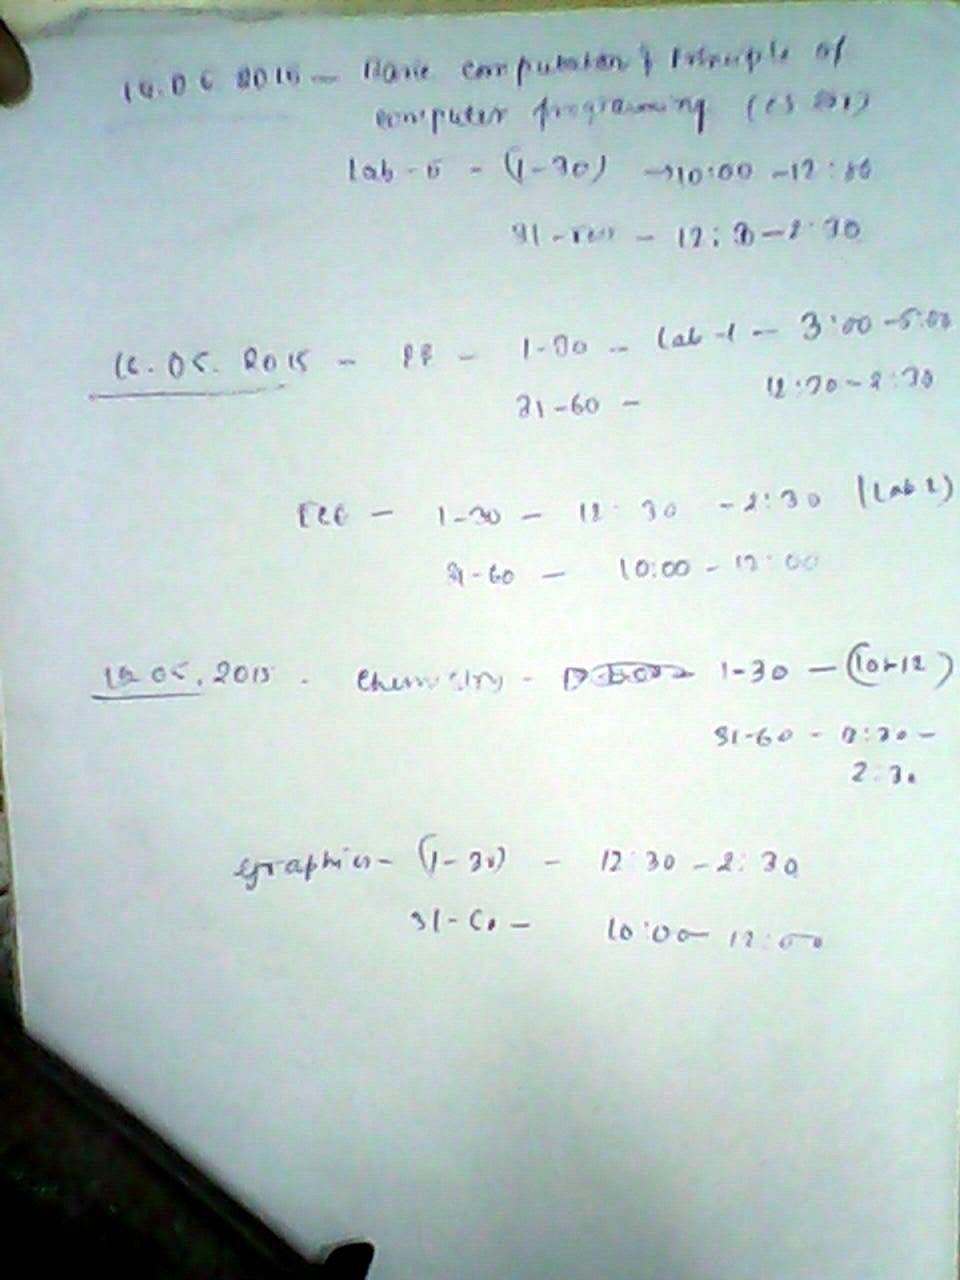 Basic computation & Principle of
computer programming (CS 201)
Lab - - (1-30) → 10:00 - 12:
31 - - 12: - 2:30
05. 2015 - PP - 1-30 - Lab -1 - 3:00 - 5:00
31-60 - 12:30 - 2:30
- 1-30 - 12:30 - 2:30 (Lab 2)
31-60 - 10:00 - 12:00
05. 2015 - Chemistry - 1-30 - (10-12)
31-60 - 12:30 -
2:30
Graphics - (1-30) - 12:30 - 2:30
31-60 - 10:00 - 12:00